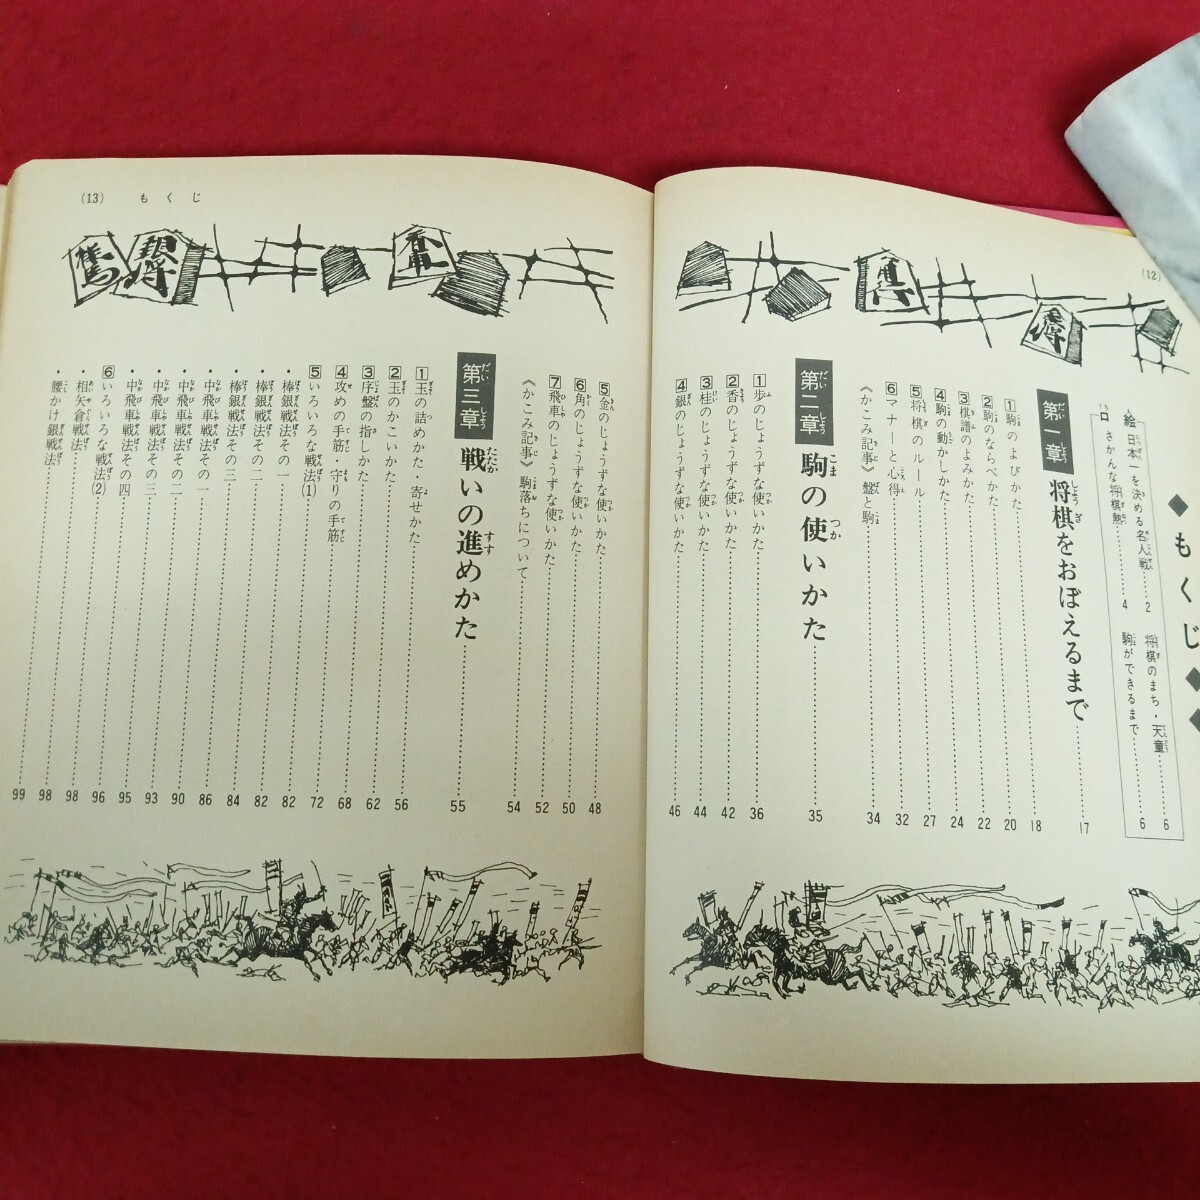 (12)
◆もくじ◆
口絵
日本一を決める名人戦……2
さかんな将棋熱……4
将棋のまち・天童……6
駒ができるまで……6
第一章 将棋をおぼえるまで……17
1 駒のよびかた……18
2 駒のならべかた……20
3 棋譜のよみかた……22
4 駒の動かしかた……24
5 将棋のルール……27
6 マナーと心得……32
《かこみ記事》盤と駒……34
第二章 駒の使いかた……35
1 歩のじょうずな使いかた……36
2 香のじょうずな使いかた……42
3 桂のじょうずな使いかた……44
4 銀のじょうずな使いかた……46
(13) もくじ
5 金のじょうずな使いかた……48
6 角のじょうずな使いかた……50
7 飛車のじょうずな使いかた……52
《かこみ記事》駒落ちについて……54
第三章 戦いの進めかた……55
1 玉の詰めかた・寄せかた……56
2 玉のかこいかた……62
3 序盤の指しかた……68
4 攻めの手筋・守りの手筋……72
5 いろいろな戦法(1)……82
・棒銀戦法その一……82
・棒銀戦法その二……84
・棒銀戦法その三……86
・中飛車戦法その一……90
・中飛車戦法その二……93
・中飛車戦法その三……95
・中飛車戦法その四……96
6 いろいろな戦法(2)……98
・相矢倉戦法……98
・腰かけ銀戦法……99